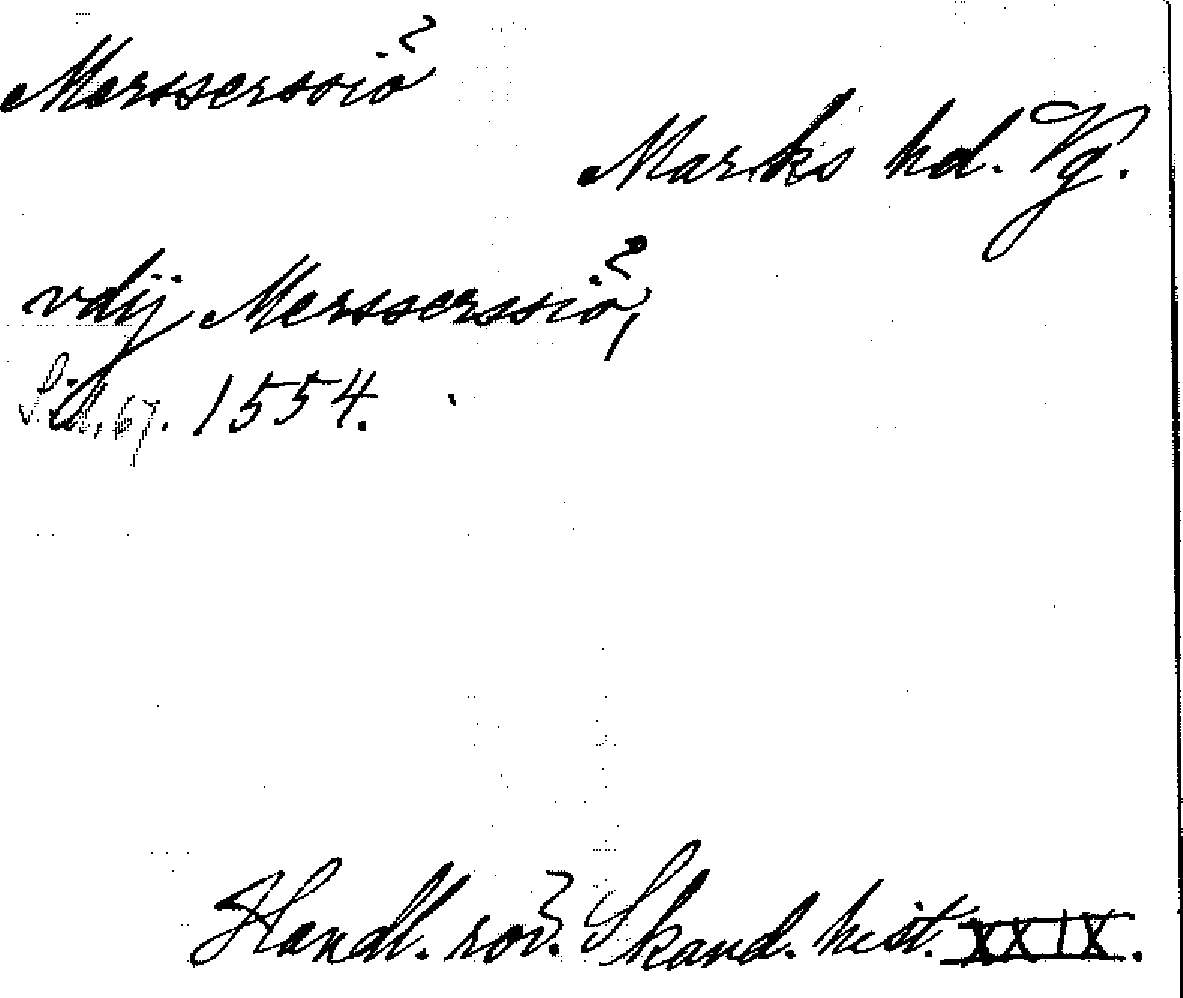 Mersserssiö
Marks hd. Vg.
vdij Mersserssiö,
Sid. 67. 1554.
Handl. rör. Skand. hist. XXIX.